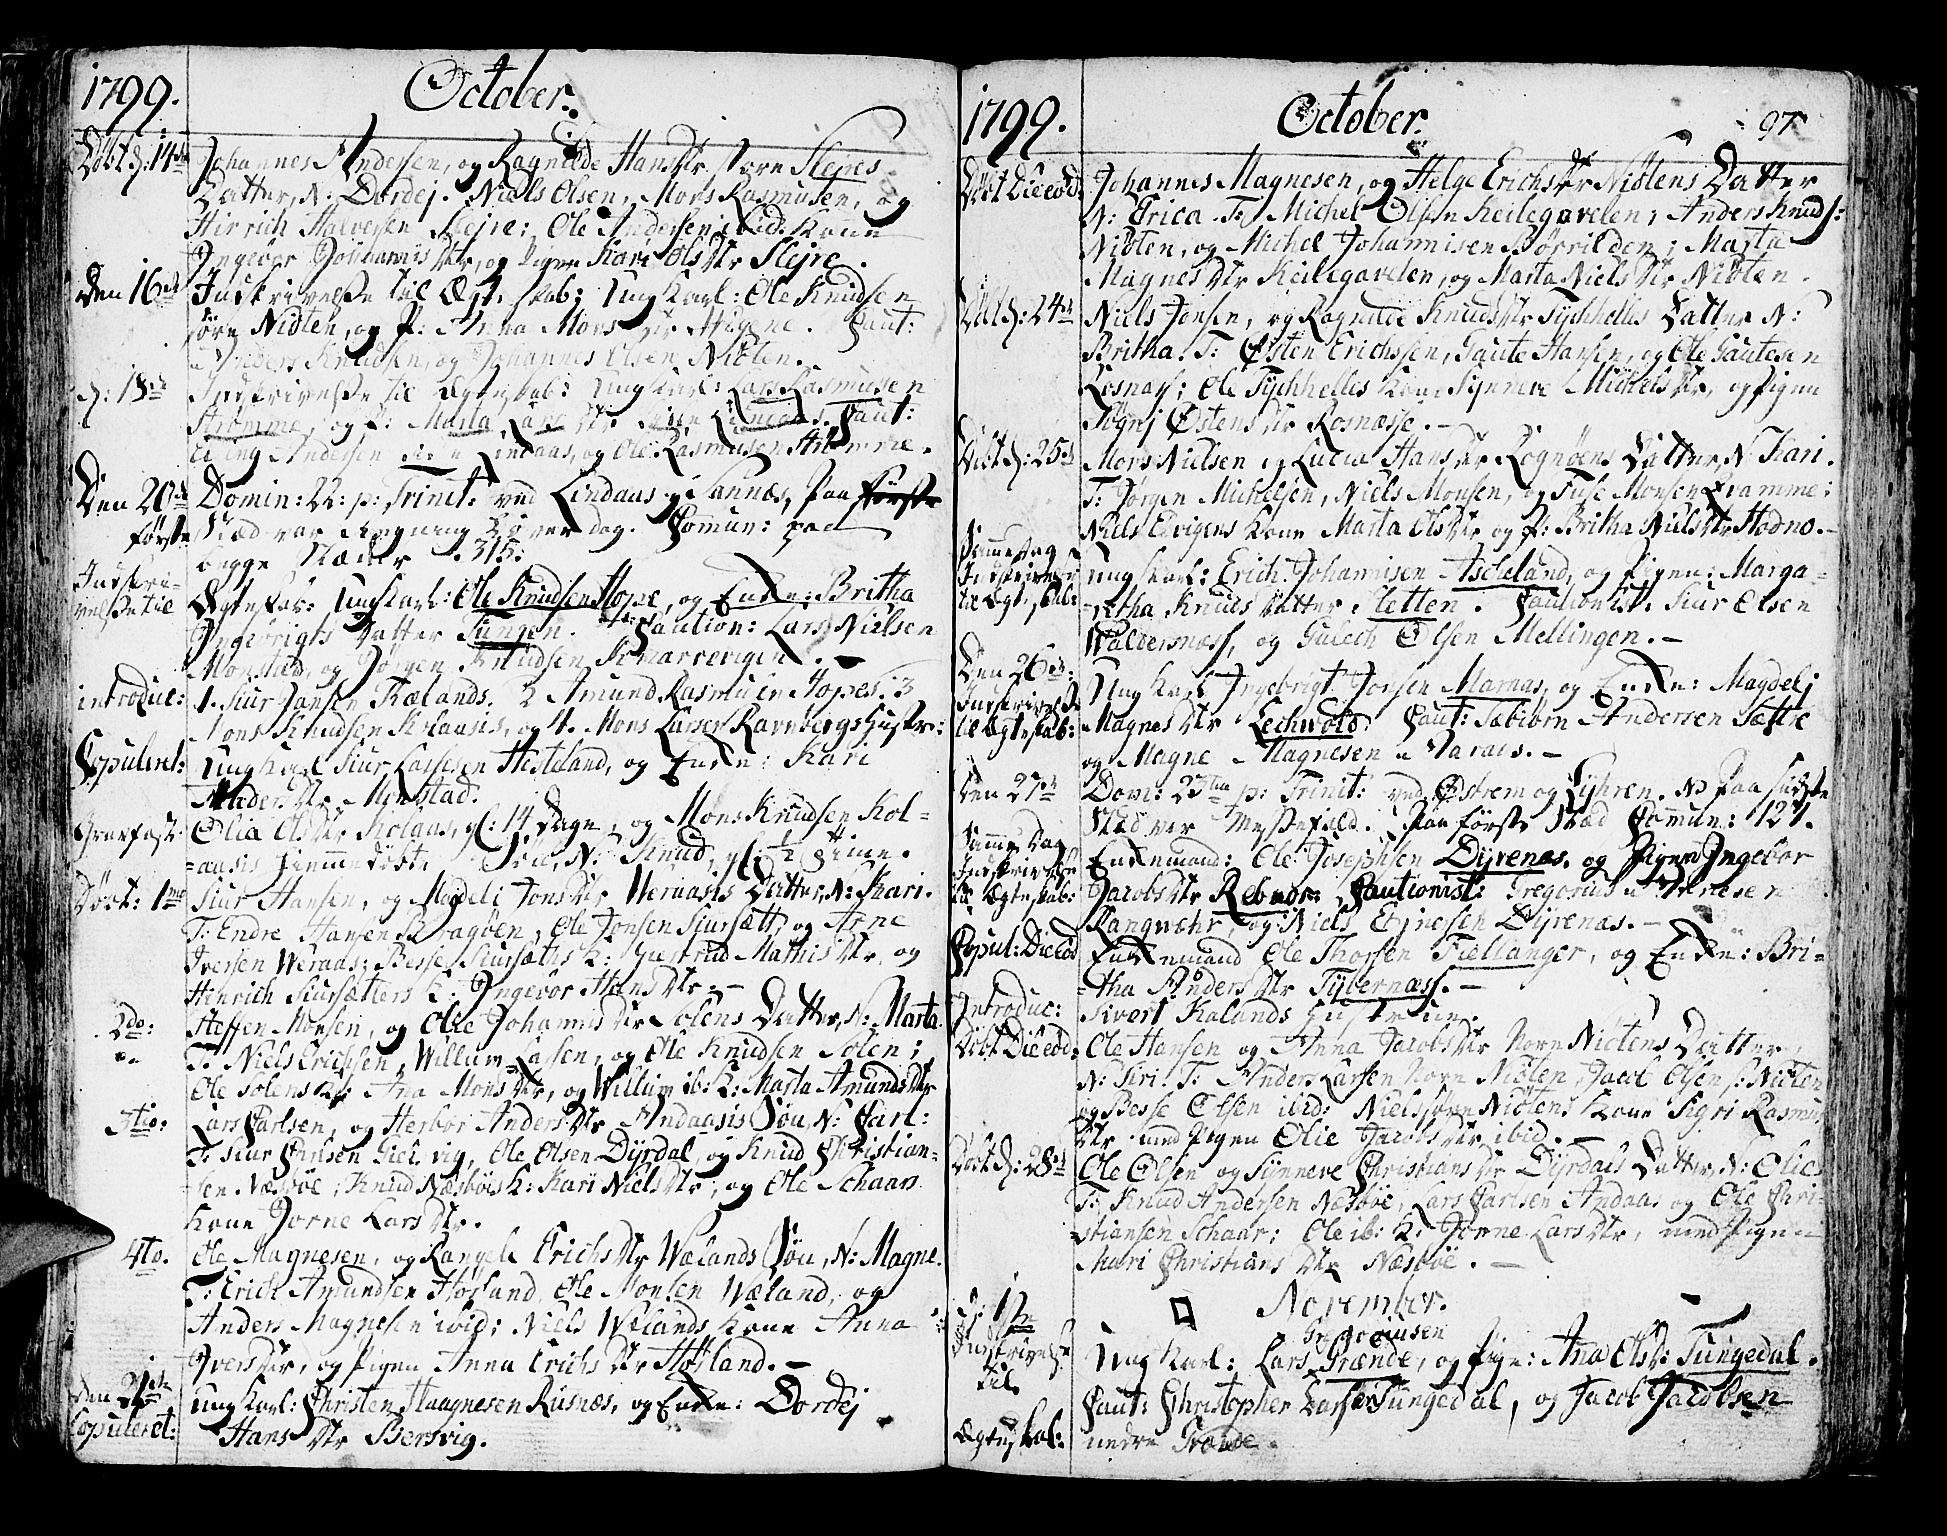 1799. October.
Døbt d: 14de Johannes Andersen, og Ragnilde Hansdtr Slejres
Datter, N: Dordej. Niels Olsen, Mons Rasmusen, og
Hinrich Halvorsen Slejre; Ole Andersen ibid: Kone
Ingebor Johannisdtr, og Pigen Kari Olsdtr Slejre.
Den 16de Indskrivelse til Ægteskab: Ungkarl: Ole Knudsen
Nidten, og P: Anna Monsdtr. Caut:
Anders Knudsen, og Johannes Olsen Nidten.
d: 18de Indskrivelse til Ægteskab: Ungkarl: Lars Rasmusen
Strømme, og P: Marta Larsdtr Lindaas. Caut:
Andersen Lindaas, og Ole Rasmusen Strømme.
Den 20de Domin: 22: p: Trinit: ved Lindaas og Sannæs, Paa første
første Stæd var Comun: paa
begge Stæder 315:
Indskri-
velse til Ægteskab: Ungkarl: Ole Knudsen Hope, og Enke: Britha
Ingebrigts Datter Tungen. Caution: Lars Nielsen
Monstad, og Jørgen Knudsen Knarrevigen.
introduc: 1. Siur Jansen Fælands. 2 Amund Rasmusen Hopes: 3
Mons Knudsen Kolaasis, og 4. Mons Larsen Ravnbergs Hustr:
Copuleret: Ungkarl Siur Lassesen Hesteland, og Enke: Kari
Monstad.
Gravfæst: Olia Olsdtr Kolaas, gl: 14 Dage, og Mons Knudsen Kol-
=aasis hjemmedøbte Søn, N: Knud, gl: ½ Time.
Døbt: 1mo Siur Hansen, og Magdeli Jonsdtr Weraasis Datter, N: Kari.
T: Endre Hansen Kragben, Ole Jonsen Siursætt, og Arne
Iversen Weraas; Besse Siursæths K: Giertrud Mathisdtr, og
Henrich Siursætters K: Ingebor Hansdtr. -
2do: Steffen Monsen, og Olie Johannisdtr Solens Datter, N: Marta.
T: Niels Erichsen, Willum Lassen, og Ole Knudsen Solen;
Ole Solens K: Ana Monsdtr, og Willum ib: K: Marta Amundsdtr
3tio: Lars Carlsen, og Herbor Andersdtr Andaasis Søn, N: Carl:
T: Siur Hansen Gielvig, Ole Olsen Dyrdal, og Knud Christian-
sen Næsbøe; Knud Næsbøes K: Kari Nielsdtr, og Ole Schaars
Kone Jorne Larsdtr.
4to. Ole Magnesen, og Rangele Erichsdtr Wælands Søn, N: Magne.
T: Erich Amundsen Høyland, Ole Monsen Wæland, og
Anders Magnesen ibid; Niels Wælands Kone Anna
Iversdtr, og Pigen Anna Erichsdtr Høyland. -
den 21de Ungkarl: Christen Haagnesen Risnæs, og Enke: Dordej
Copuleret: Hansdtr Bersvig.
1799. October. 97
Døbt Die eod: Johannes Magnesen, og Helge Erichsdtr Nidtens Datter
N: Erica. T: Michel Olsen Keilegavelen, Anders Knuds:
Nidten, og Michel Johannisen Børrilden; Marta
Magnesdtr Keilegavelen, og Marta Nielsdtr Nidten.
Døbt d: 24de Niels Jonsen, og Ragnilde Knudsdtr Tychhelles Datter N:
Britha. T: Østen Erichsen, Gaute Hansen, og Ole Gautesen
Rosnæss; Ole Tychhelles Kone Synneve Michelsdtr, og Pigen
Østensdtr Rosnæsse. -
Døbt d: 25de Mons Nielsen og Lucia Hansdtr Rognøens Datter, N: Kari.
T: Jørgen Michelsen, Niels Monsen, og Tufe Monsen Kramme;
Niels Elvigens Kone Marta Olsdtr og P: Britha Nielsdtr Hodno. -
Samme Dag
Indskrivelse
til Ægteskab: Ungkarl: Erich Johannisen Ascheland, og Pigen: Marga-
-retha Knuds Datter Sletten. Cautionist: Siur Olsen
Waldersnæss, og Gulech Olsen Mellingen. -
Den 26de:
Indskrivelse
til Ægteskab: Ungkarl Ingebrigt Jonsen Maraas, og Enke: Magdelj
Magnesdtr Lechvold. Caut: Sæbiørn Andersen Sættre
og Magne Magnesen Maraas. -
Den 27de Dom: 23tia p: Trinit: ved Østrem og Lyhren. NB Paa sidste
Stæd var Messefald. Paa første Stæd Comun: 127.
Samme Dag
Indskrivelse
til Ægteskab: Enkemand: Ole Josephsen Dyrenæs. og Pigen Ingebor
Jacobsdtr Rebnor: Cautionist: Gregorius
Rangvæhr, og Niels Ejnesen Dyrenæs. -
Copul: Die eod Enkemand Ole Thorsen Fiellanger, og Enke: Bri-
-tha Andersdtr Tybernæss. -
Introduc: Sivert Kalands Hustrue.
Døbt Die eod: Ole Hansen og Anna Jacobsdtr Norn Nidtens Datter,
N: Siri. T: Anders Larsen Norn Nidten, Jacob Olsen s: Nidten
og Besse Olsen ibid: Niels sørn Nidtens Kone Sigri Rasmus
dtr med Pigen Olie Jacobsdtr ibid. -
Døbt d: 28de Ole Olsen og Synneve Christiansdtr Dyrdals Datter, N: Olie
T: Knud Andersen Næsbøe, Lars Carlsen Andaas og Ole Cari-
stiansen Schaar; Ole ib: K: Jorne Larsdtr, med Pigen
Mari Christiansdtr Næsbøe. -
November.
d: 1te
Indskrivelse
til
Ægteskab: Ungkarl: Lars Gregoriusen Grænde, og Pige: Ana Olsd: Tungedal.
Caut: Christopher Larsen Tungedal, og Jacob Jacobsen
nedre Grænde.